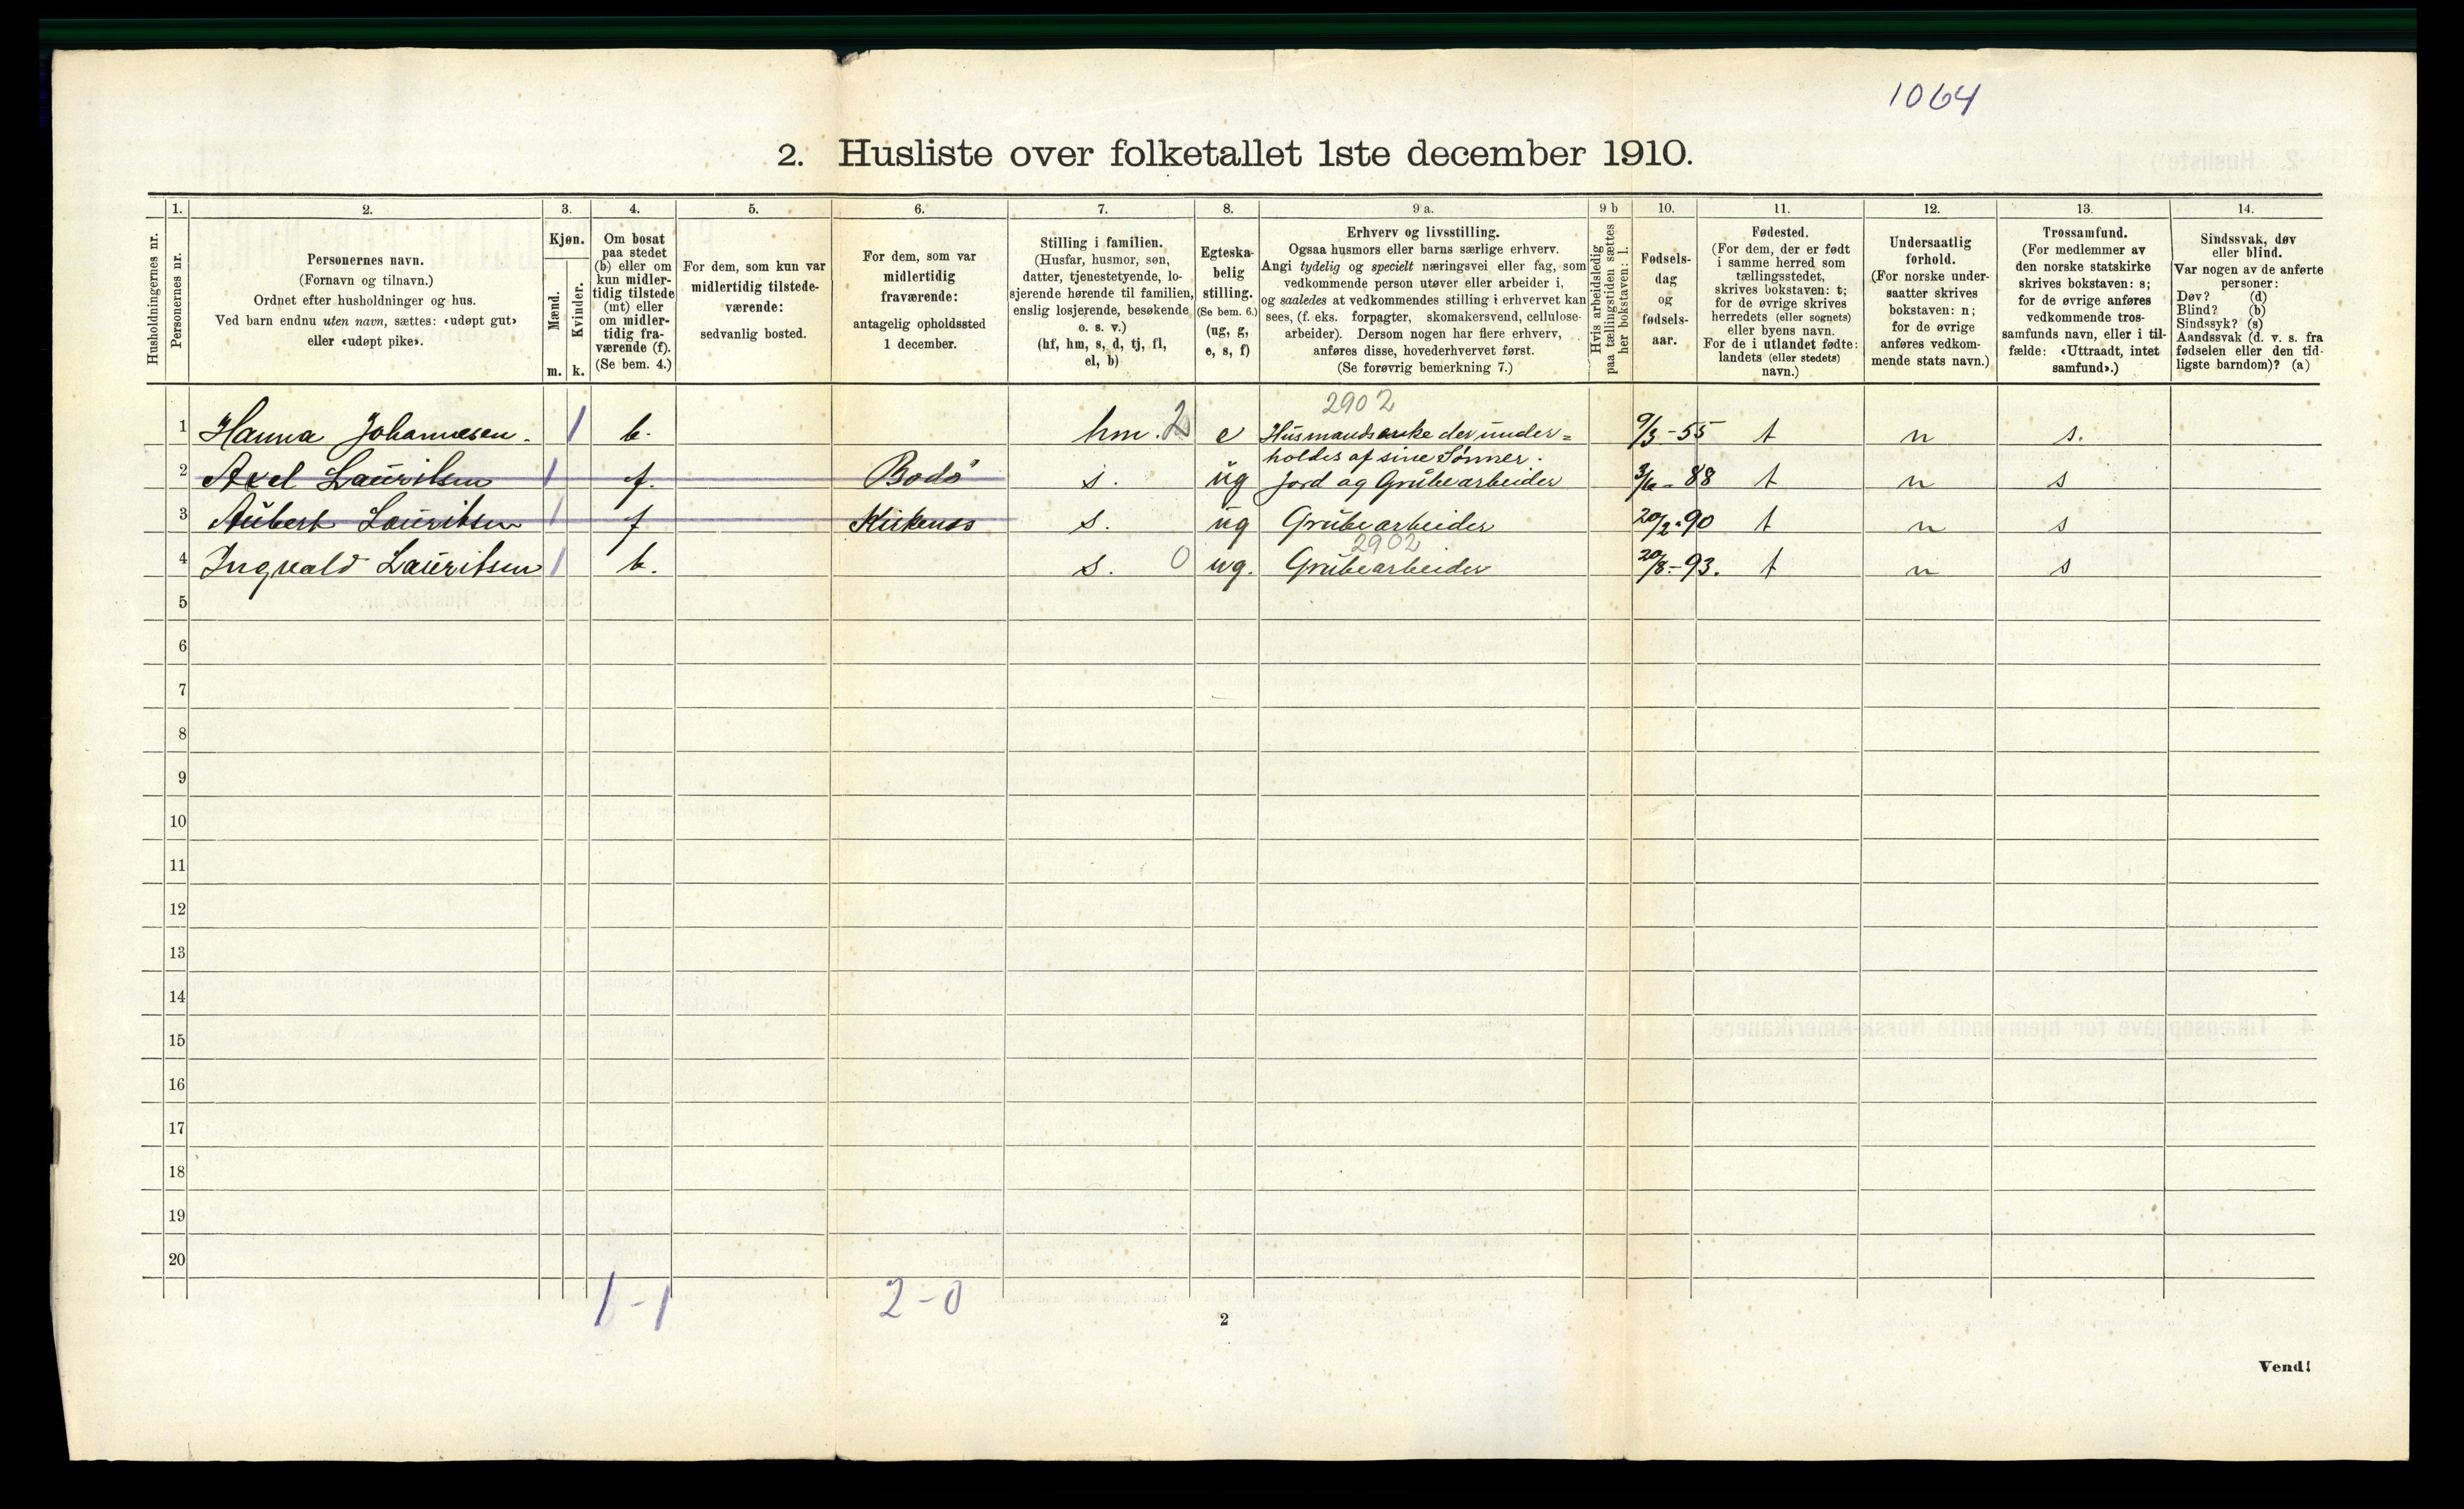 1064
2. Husliste over folketallet 1ste december 1910.
1. 2. 3. 4. 5. 6. 7. 8. 9 a. 9 b 10. 11. 12. 13. 14.
Husholdningernes nr.
Personernes nr.
Personernes navn.
(Fornavn og tilnavn.)
Ordnet efter husholdninger og hus.
Ved barn endnu uten navn, sættes: «udøpt gut»
eller «udøpt pike».
Kjøn.
Mænd.
Kvinder.
m. k.
Om bosat
paa stedet
(b) eller om
kun midler-
tidig tilstede
(mt) eller
om midler-
tidig fra-
værende (f).
(Se bem. 4.)
For dem, som kun var
midlertidig tilstede-
værende:
sedvanlig bosted.
For dem, som var
midlertidig
fraværende:
antagelig opholdssted
1 december.
Stilling i familien.
(Husfar, husmor, søn,
datter, tjenestetyende, lo-
sjerende hørende til familien,
enslig losjerende, besøkende
o. s. v.)
(hf, hm, s, d, tj, fl,
el, b)
Egteska-
belig
stilling.
(Se bem. 6.)
(ug, g,
e, s, f)
Erhverv og livsstilling.
Ogsaa husmors eller barns særlige erhverv.
Angi tydelig og specielt næringsvei eller fag, som
vedkommende person utøver eller arbeider i,
og saaledes at vedkommendes stilling i erhvervet kan
sees, (f. eks. forpagter, skomakersvend, cellulose-
arbeider). Dersom nogen har flere erhverv,
anføres disse, hovederhvervet først.
(Se forøvrig bemerkning 7.)
Hvis arbeidsledig
paa tællingstiden sættes
her bokstaven: l.
Fødsels-
dag
og
fødsels-
aar.
Fødested.
(For dem, der er født
i samme herred som
tællingsstedet,
skrives bokstaven: t;
for de øvrige skrives
herredets (eller sognets)
eller byens navn.
For de i utlandet fødte:
landets (eller stedets)
navn.)
Undersaatlig
forhold.
(For norske under-
saatter skrives
bokstaven: n;
for de øvrige
anføres vedkom-
mende stats navn.)
Trossamfund.
(For medlemmer av
den norske statskirke
skrives bokstaven: s;
for de øvrige anføres
vedkommende tros-
samfunds navn, eller i til-
fælde: «Uttraadt, intet
samfund».)
Sindssvak, døv
eller blind.
Var nogen av de anførte
personer:
Døv? (d)
Blind? (b)
Sindssyk? (s)
Aandssvak (d. v. s. fra
fødselen eller den tid-
ligste barndom)? (a)
2902
1 Hanna Johannesen. 1 b. hm. 2 e Husmandsenke der under= 9/3-55 t n s.
holdes af sine Sønner.
2 Axel Lauritsen 1 f. Bodö s. ug Jord og Grubearbeider 3/6-88 t n s
3 Aubert Lauritsen 1 f Kirkenes s. ug Grubearbeider 20/2-90 t n s
2902
4 Ingvald Lauritsen 1 b. s. 0 ug. Grubearbeider 20/8-93. t n s
5
6
7
8
9
10
11
12
13
14
15
16
17
18
19
20
1-1 2-0
2
Vend!